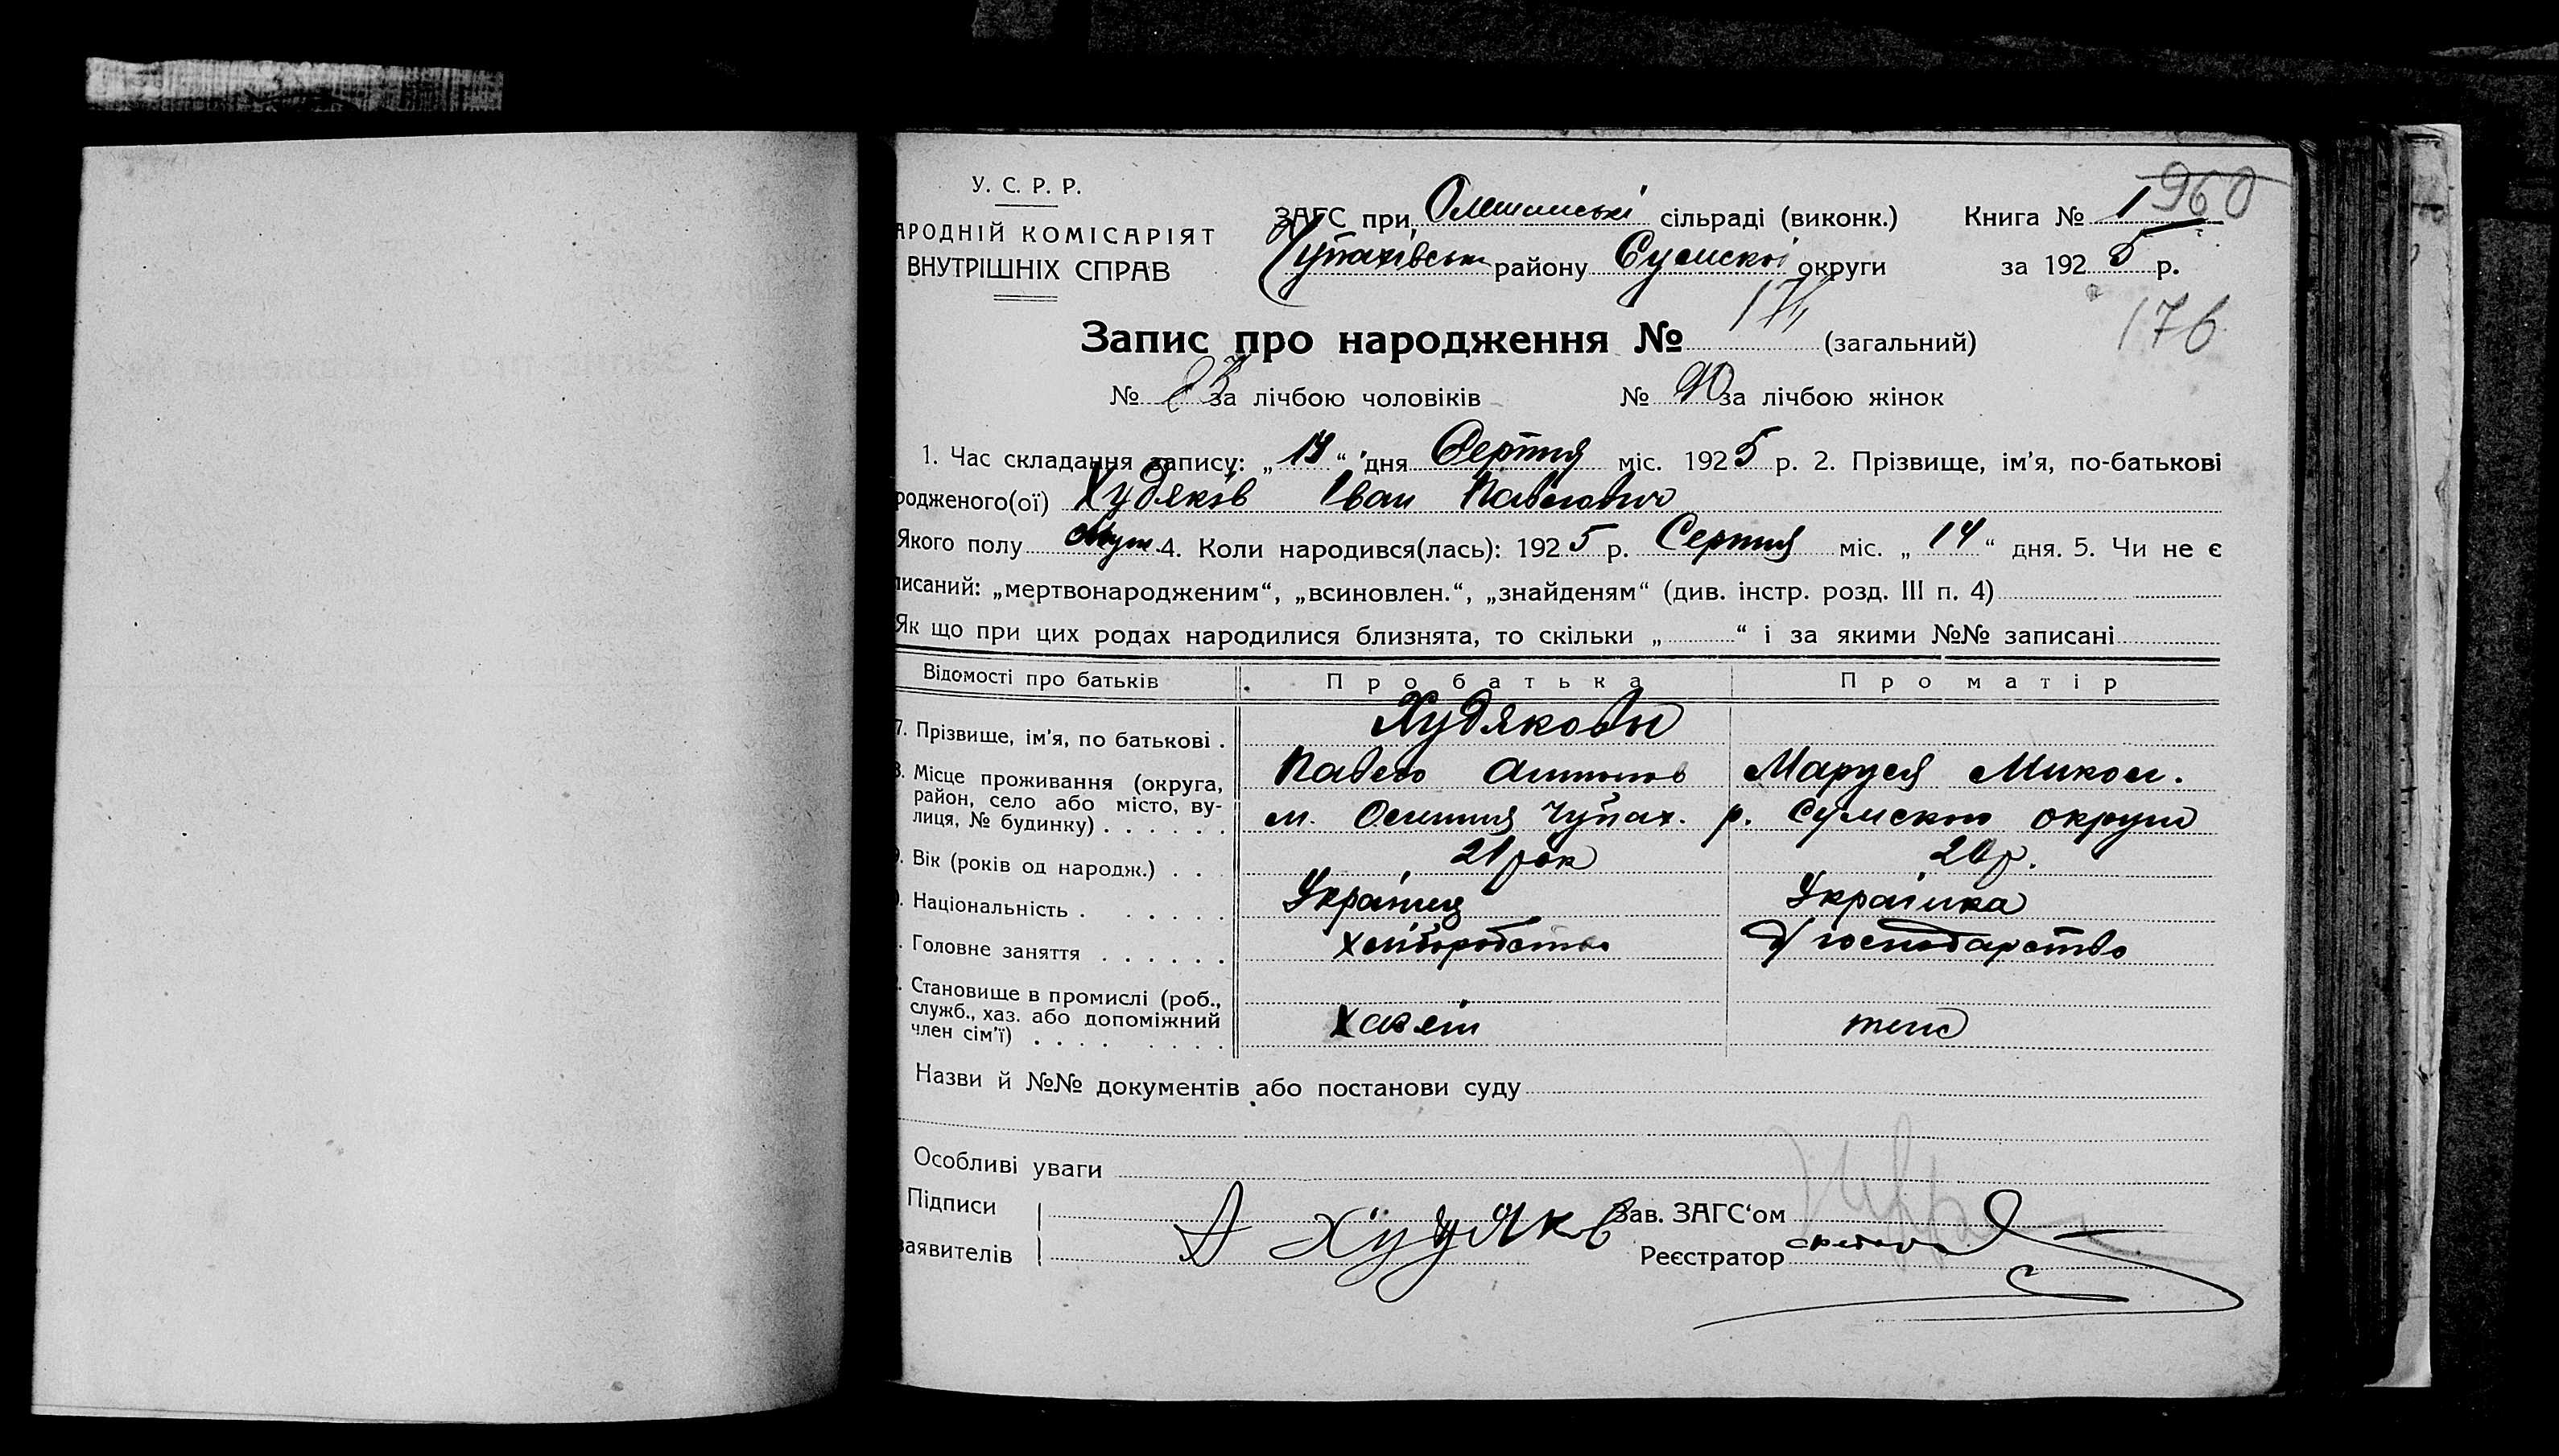 960
У. С. Р. Р.
АРОДНІЙ КОМІСАРІЯТ
ВНУТРІШНІХ СПРАВ
ЗАГС при Олешинські сільраді (виконк.) Книга № 1
Чупахівськ району Сумскоі округи за 1925 р.
176
Запис про народження № (загальний)
№ за лічбою чоловіків № 90 за лічбою жінок
1. Час складання запису: „ “ дня Серпня міс. 1925 р. 2. Прізвище, ім’я, по-батькові
родженого(ої) Худяків Іван Павлович
Якого полу муж. 4. Коли народився(лась): 1925 р. Серпня міс. „ 14 “ дня. 5. Чи не є
писаний: „мертвонародженим“, „всиновлен.“, „знайденям“ (див. інстр. розд. III п. 4)
Як що при цих родах народилися близнята, то скільки „ “ і за якими №№ записані
Відомості про батьків Про батька Про матір
7. Прізвище, ім’я, по батькові . Худяковы
Павло Антонов Маруся Микол.
8. Місце проживання (округа, район, село або місто, вулиця, № будинку) . . . . . . м. Чупах. р. Сумскою округи
9. Вік (років од народж.) . . 21 рок 20 р.
. Національність . . . . . . Украінц Украінка
. Головне заняття . . . . . . хліборобство господарство
. Становище в промислі (роб., служб., хаз. або допоміжний член сім’ї) . . . . . . . . Хазяін
Назви й №№ документів або постанови суду
Особливі уваги
Підписи
заявителів Худяков
Зав. ЗАГС‘ом
Реєстратор